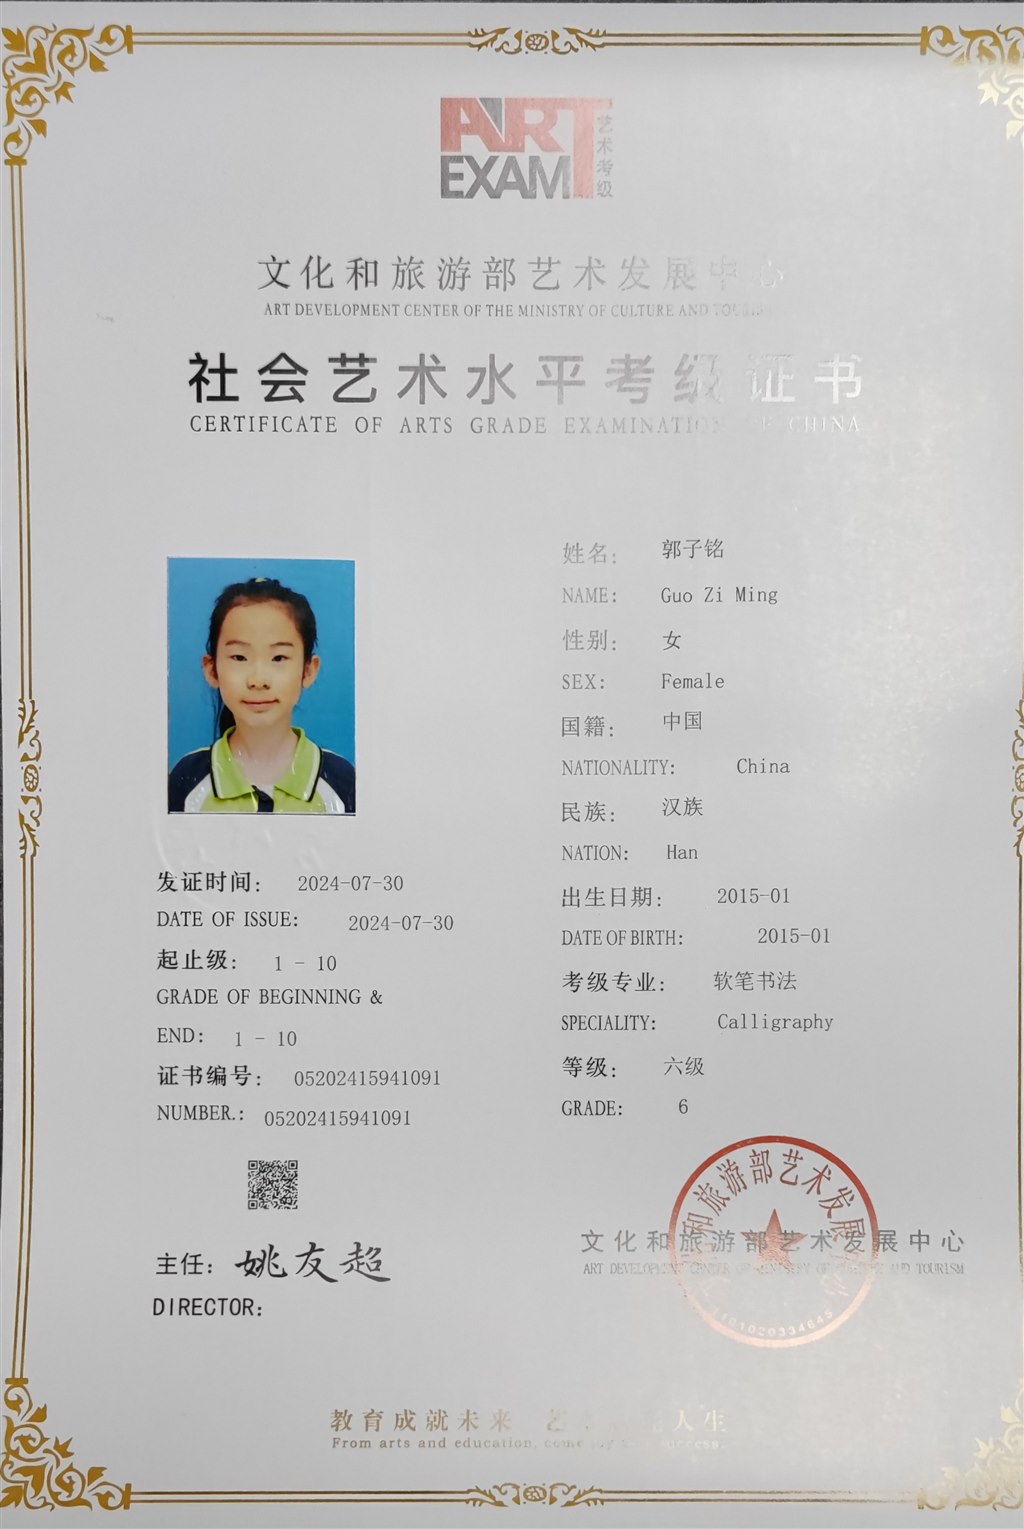 ART
EXAM
艺术考级
文化和旅游部艺术发展中心
ART DEVELOPMENT CENTER OF THE MINISTRY OF CULTURE AND TOURISM
社会艺术水平考级证书
CERTIFICATE OF ARTS GRADE EXAMINATION OF CHINA
姓名： 郭子铭
NAME: Guo Zi Ming
性别： 女
SEX: Female
国籍： 中国
NATIONALITY: China
民族： 汉族
NATION: Han
出生日期： 2015-01
DATE OF BIRTH: 2015-01
考级专业： 软笔书法
SPECIALITY: Calligraphy
等级： 六级
GRADE: 6
发证时间： 2024-07-30
DATE OF ISSUE: 2024-07-30
起止级： 1 - 10
GRADE OF BEGINNING &
END: 1 - 10
证书编号： 05202415941091
NUMBER.: 05202415941091
主任： 姚友超
DIRECTOR:
文化和旅游部艺术发展中心
ART DEVELOPMENT CENTER OF MINISTRY OF CULTURE AND TOURISM
和旅游部艺术发展
1101020334645
教育成就未来 艺 人生
From arts and education, come success.